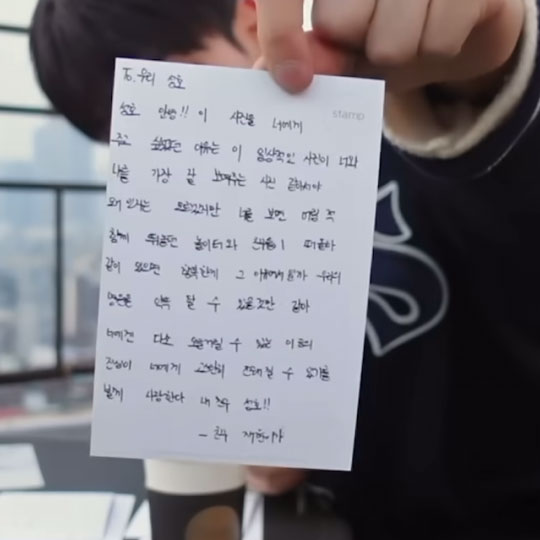 To. 우리 성호
성호 안녕!! 이 사진을 너에게
stamp
주고 싶었던 이유는 이 일상적인 사진이 너와
나를 가장 잘 보여주는 사진 같아서야
왜 인지는 모르겠지만 너를 보면 어릴 적
함께 뛰놀던 놀이터와 친구들이 떠올라
같이 있으면 행복한게 그
영원을 약속 할 수 있을 것만 같아
너에겐 다소 오글거릴 수 있는 이
진심이 너에게 고스란히 전해질 수 있기를
빌게 사랑한다 내 친구 성호!!
– 친구 재현이가